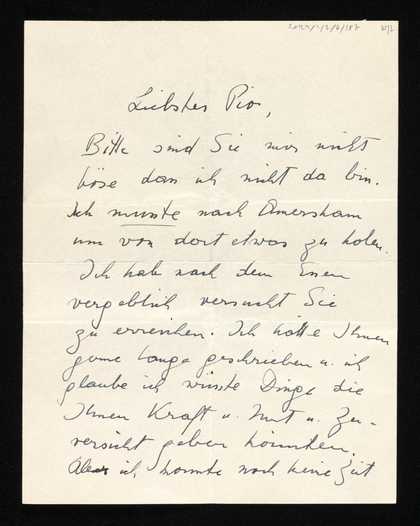 Liebster Pio,
Bitte sind Sie mir nicht
böse dass ich nicht da bin.
Ich musste nach Amersham
um von dort etwas zu holen.
Ich hab nach dem Essen
vergeblich versucht Sie
zu erreichen. Ich hätte Ihnen
gerne lange geschrieben u. ich
glaube ich wüsste Dinge die
Ihnen Kraft u. Mut u. Zu-
versicht geben könnten.
Aber ich konnte noch keine Zeit